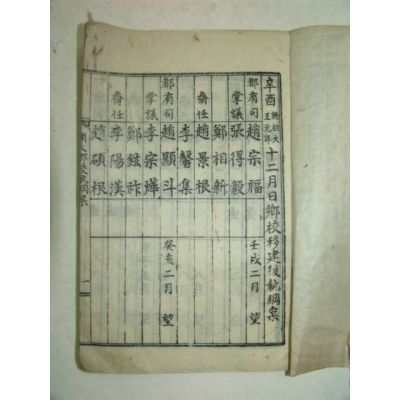 辛酉 純祖大王元年 十二月日鄕校移建後執綱案
都有司 趙宗福 壬戌二月 望
掌議 張得毅
鄭相新
齋任 趙景根
李馨集
都有司 趙顯斗 癸亥二月 望
掌議 李宗燁
鄭鎰祚
齋任 李陽漢
趙碩根
鄕校執綱案 一